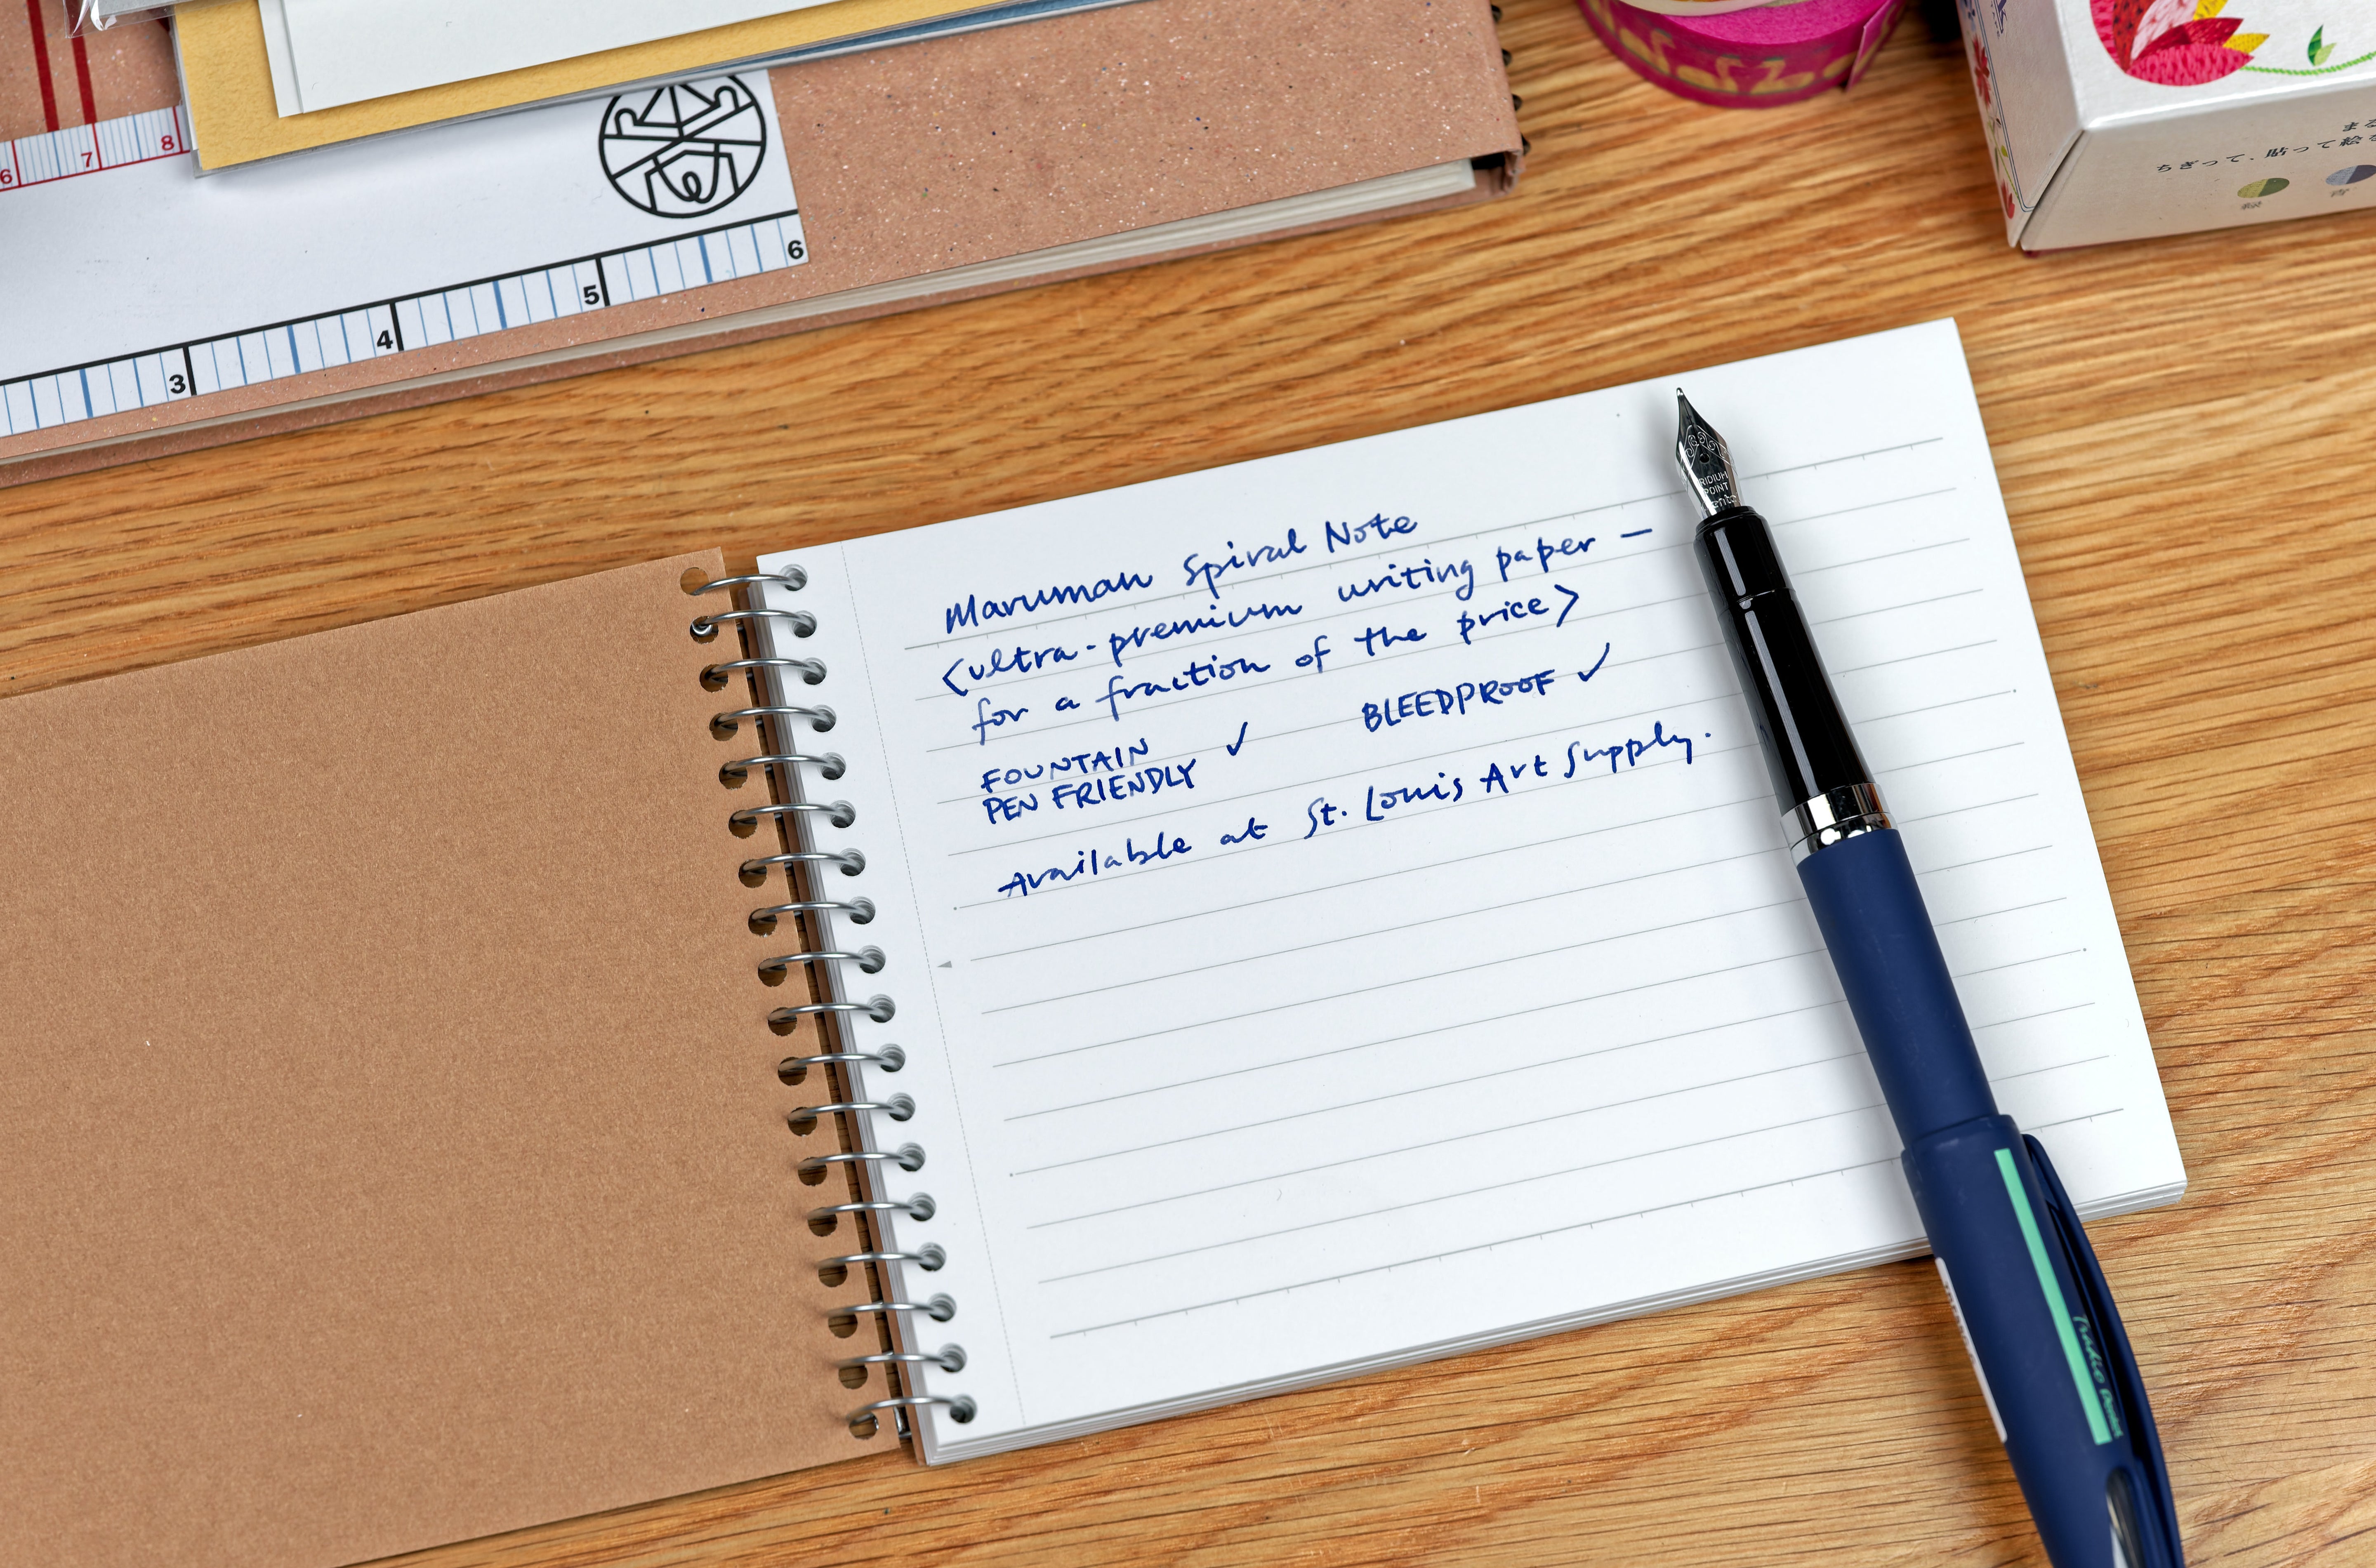 6
7
8
3
4
5
6
ちぎって、貼って絵を
緑
青
Maruman Spiral Note
<ultra-premium writing paper —
for a fraction of the price>
FOUNTAIN
PEN FRIENDLY ✓
BLEEDPROOF ✓
Available at St. Louis Art Supply.
IRIDIUM
POINT